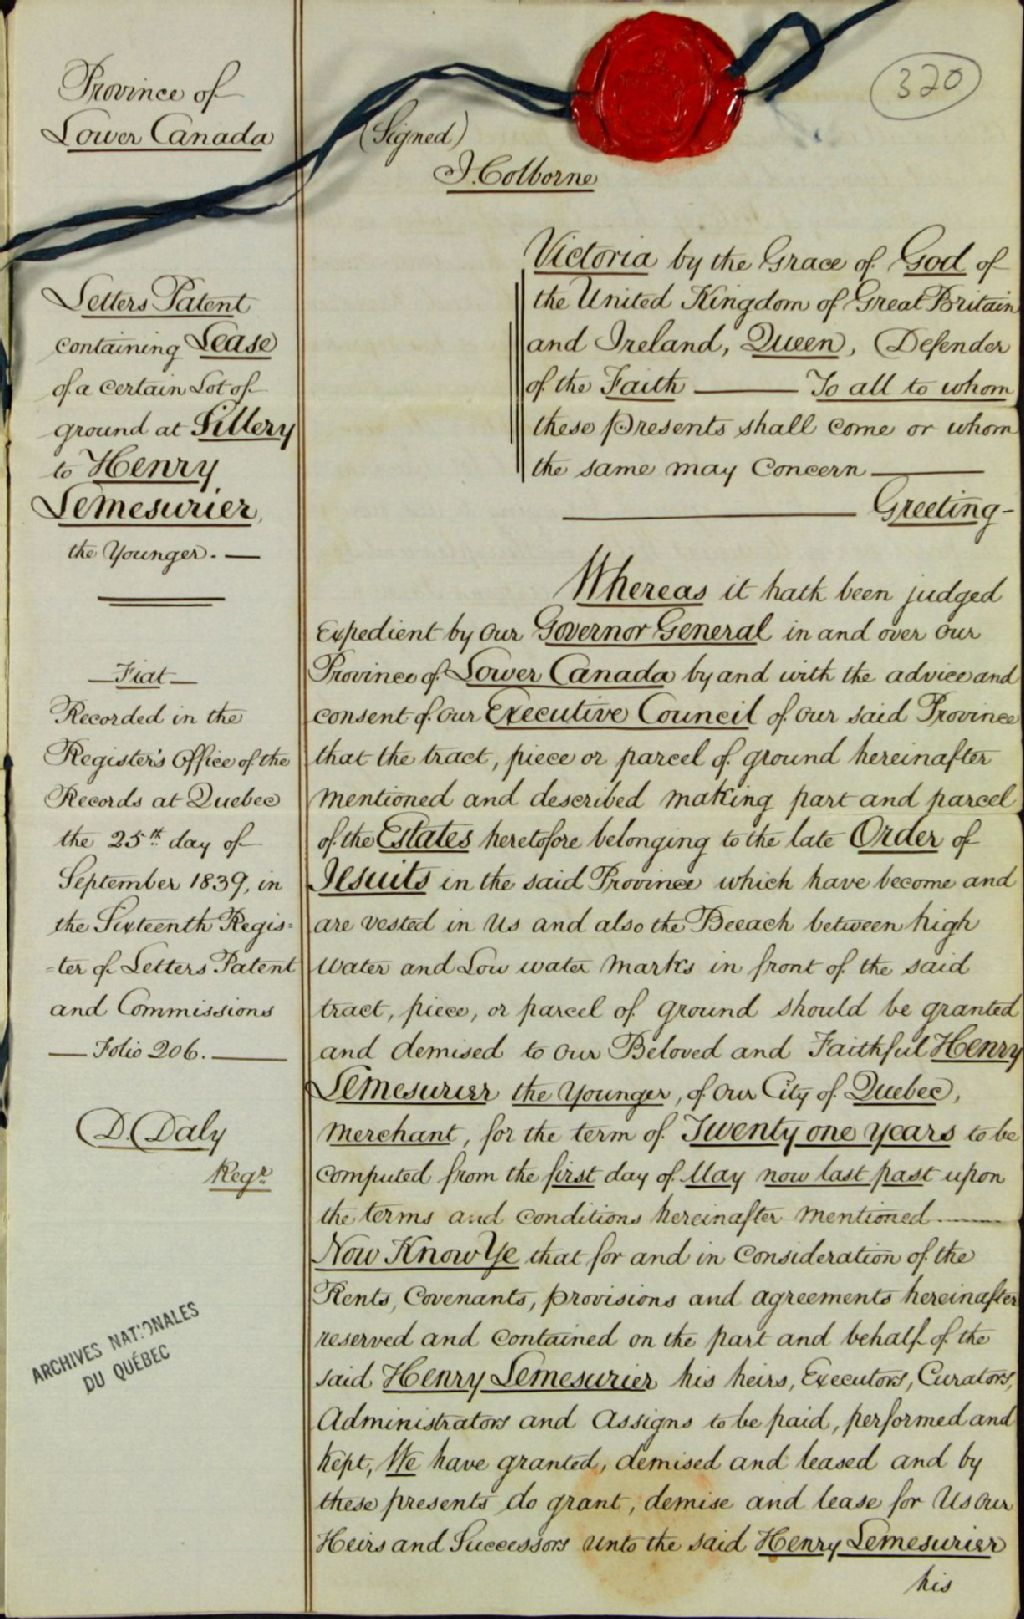 320
Province of
Lower Canada
(Signed)
J. Colborne
Letters Patent
containing Lease
of a certain Lot of
ground at Sillery
to Henry
Lemesurier,
the Younger. —
Fiat
Recorded in the
Register's Office of the
Records at Quebec
the 25th day of
September 1839, in
the Sixteenth Regis-
-ter of Letters Patent
and Commissions
— Folio 206. —
D. Daly
Regr.
ARCHIVES NATIONALES
DU QUÉBEC
Victoria by the Grace of God of
the United Kingdom of Great Britain
and Ireland, Queen, Defender
of the Faith — To all to whom
these presents shall come or whom
the same may concern —
— Greeting —
Whereas it hath been judged
Expedient by our Governor General in and over our
Province of Lower Canada by and with the advice and
consent of our Executive Council of our said Province
that the tract, piece or parcel of ground hereinafter
mentioned and described making part and parcel
of the Estates heretofore belonging to the late Order of
Jesuits in the said Province which have become and
are vested in Us and also the Beach between high
water and Low water marks in front of the said
tract, piece, or parcel of ground should be granted
and demised to our Beloved and Faithful Henry
Lemesurier the Younger, of our City of Quebec,
Merchant, for the term of Twenty one years to be
computed from the first day of May now last past upon
the terms and conditions hereinafter mentioned —
Now Know Ye that for and in consideration of the
Rents, Covenants, provisions and agreements hereinafter
reserved and contained on the part and behalf of the
said Henry Lemesurier his heirs, Executors, Curators,
Administrators and Assigns to be paid, performed and
kept, We have granted, demised and leased and by
these presents do grant, demise and lease for Us our
Heirs and Successors unto the said Henry Lemesurier
his